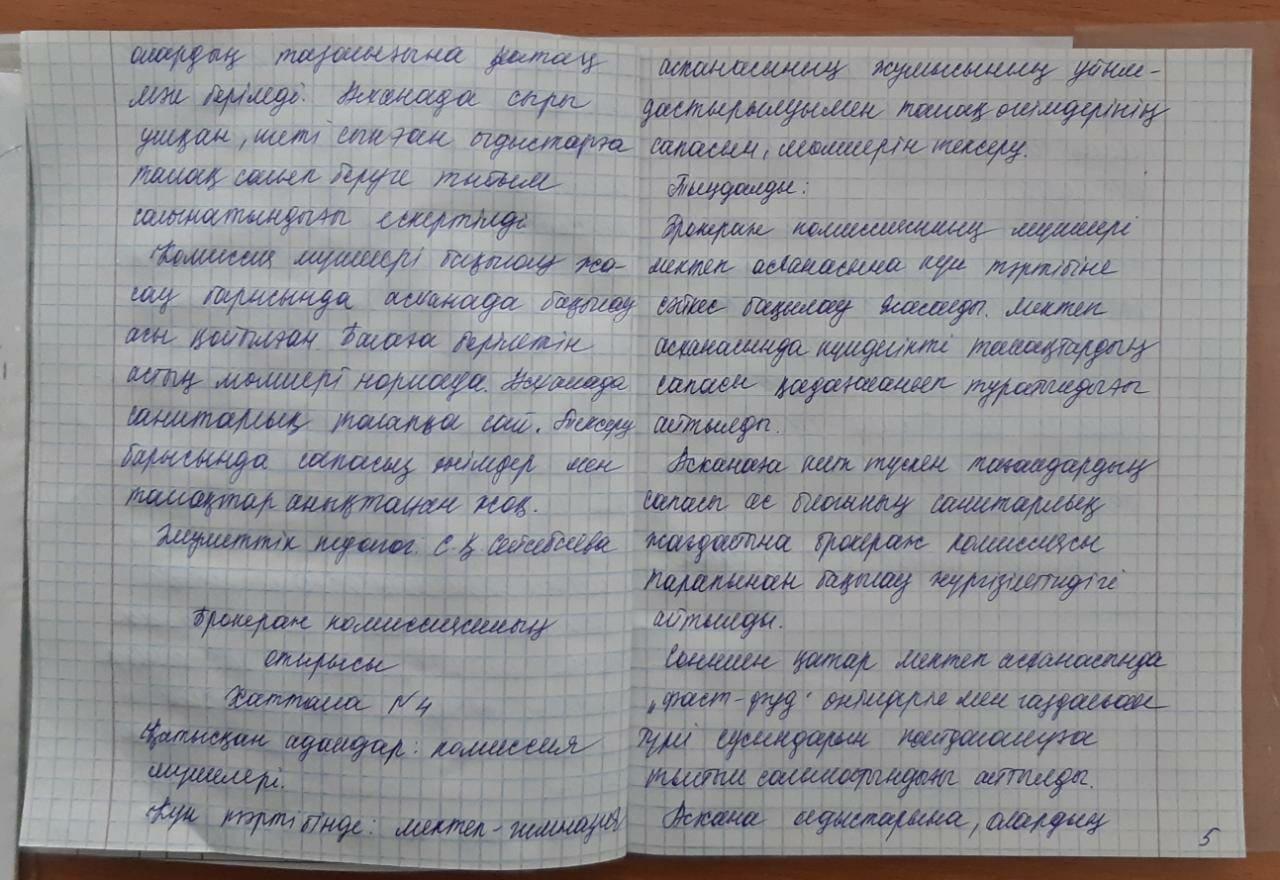 олардың тазалығына қатаң
мән берілді. Асханада сыры
ұшқан, шеті сынған ыдыстарға
тамақ салып беруге тыйым
салынатындығы ескертілді
Комиссия мүшелері бақылау жа-
сау барысында асханада бақылау
асы қойылған. Балаға берілетін
астың мөлшері нормада. Асханада
санитарлық талапқа сай. Тексеру
барысында сапасыз өнімдер мен
тамақтар анықталған жоқ.
Әлеуметтік педагог: С.Қ. Сейсебаева
Бракераж комиссиясының
отырысы
Хаттама №4
Қатысқан адамдар: комиссия
мүшелері.
Күн тәртібінде: мектеп-гимназия
асханасының жұмысының ұйым-
дастырылуымен тамақ өнімдерінің
сапасын, мөлшерін тексеру.
Тыңдалды:
Бракераж комиссияның мүшелері
мектеп асханасына күн тәртібіне
сәйкес бақылау жасалды. Мектеп
асханасында күнделікті тамақтардың
сапасы қадағаланып тұратындығы
айтылды.
Асханаға келіп түскен тағамдардың
сапасы ас блогының санитарлық
жағдайына бракераж комиссиясы
тарапынан бақылау жүргізілетіндігі
айтылды.
Сонымен қатар мектеп асханасында
"фаст-фуд" өнімдері мен газдалған
түрлі сусындарын пайдалануға
тыйым салынатындығы айтылды.
Асхана ыдыстарына, олардың
5